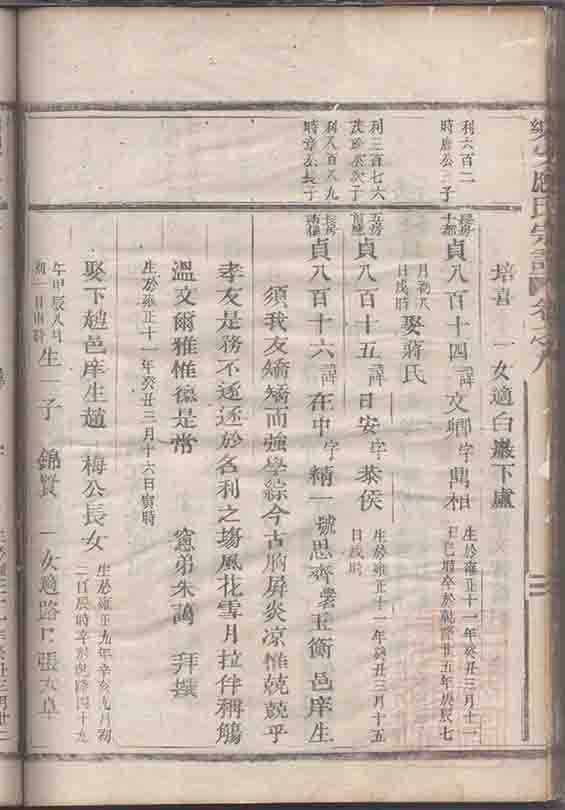 氏宗譜 卷之八
培喜 一女適白巖下盧
利六百二
時 公 子
長房
貞八百十四 諱文卿 字萬相 生於雍正十一年癸丑三月十一
日巳 卒於乾隆廿五年庚辰七
月初八
日戌時 娶蔣氏
利三百七六
次子
五房
貞八百十五 諱日安 字恭侯 生於雍正十一年癸丑三月十五
日戌時
利八百八九
時章公長子
長房
貞八百十六 諱在中 字精一 號思齊 玉衡 邑庠生
須我友矯矯而強學綜今古胸屏炎凉惟兢兢乎
孝友是務不逐逐於名利之塲風花雪月拉伴稱觴
溫文爾雅惟德是常 窻弟朱 拜撰
生於雍正十一年癸丑三月十六日寅時
娶下趙邑庠生趙一梅公長女 生於雍正九年辛亥九月初
三日辰時卒於乾隆四十九
年甲辰八月
初一日申時 生一子 錦賢 一女適路口張大阜